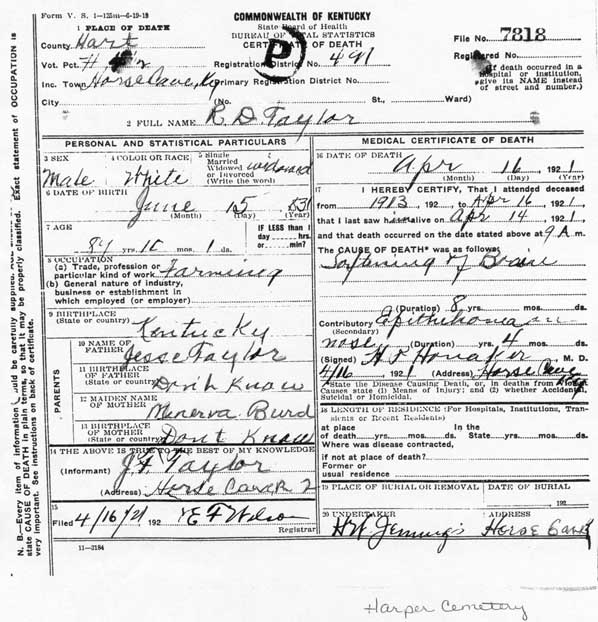 Form V. S. 1-125m-6-19-18
1 PLACE OF DEATH
COMMONWEALTH OF KENTUCKY
State Board of Health
BUREAU OF VITAL STATISTICS
CERTIFICATE OF DEATH
File No. 7318
County Hart
Vot. Pct.
Registration District No. 491
Registered No.
Inc. Town Horse Cave, Ky
Primary Registration District No.
(If death occurred in a hospital or institution, give its NAME instead of street and number.)
City (No. St., Ward)
2 FULL NAME R. D. Taylor
PERSONAL AND STATISTICAL PARTICULARS
3 SEX
Male
4 COLOR OR RACE
White
5 Single
Married
Widowed
or Divorced
(Write the word)
widowed
6 DATE OF BIRTH
June 15 831
(Month) (Day) (Year)
7 AGE
89 yrs. 10 mos. 1 ds.
IF LESS than 1
day hrs.
or min.?
8 OCCUPATION
(a) Trade, profession or
particular kind of work Farming
(b) General nature of industry,
business or establishment in
which employed (or employer)
9 BIRTHPLACE
(State or country) Kentucky
PARENTS
10 NAME OF
FATHER Jesse Taylor
11 BIRTHPLACE
OF FATHER
(State or country) Don't Know
12 MAIDEN NAME
OF MOTHER Minerva Burd
13 BIRTHPLACE
OF MOTHER
(State or country) Dont Know
14 THE ABOVE IS TRUE TO THE BEST OF MY KNOWLEDGE
(Informant) J. F. Taylor
(Address) Horse Cave R 2
15
Filed 4/16/21 192 E F Wilson
Registrar
11-3184
MEDICAL CERTIFICATE OF DEATH
16 DATE OF DEATH
Apr 16 1921
(Month) (Day) (Year)
17 I HEREBY CERTIFY, That I attended deceased
from 1913, 192 to Apr 16, 1921
that I last saw him alive on Apr 14, 1921,
and that death occurred on the date stated above at 9 A m.
The CAUSE OF DEATH* was as follows:
Softening of Brain
(Duration) 8 yrs. mos. ds.
Contributory Epithelioma on
(Secondary)
nose (Duration) 4 yrs. mos. ds.
(Signed) H. F. Honaker M. D.
4/16 1921 (Address) Horse Cave
*State the Disease Causing Death, or, in deaths from Violent
Causes state (1) Means of Injury; and (2) whether Accidental,
Suicidal or Homicidal.
18 LENGTH OF RESIDENCE (For Hospitals, Institutions, Transients or Recent Residents)
at place In the
of death yrs. mos. ds. State yrs. mos. ds.
Where was disease contracted,
if not at place of death?
Former or
usual residence
19 PLACE OF BURIAL OR REMOVAL
DATE OF BURIAL
192
20 UNDERTAKER
H W Jennings
ADDRESS
Horse Cave
N. B.—Every item of information should be carefully supplied. AGE should be stated EXACTLY. state CAUSE OF DEATH in plain terms, so that it may be properly classified. Exact statement of OCCUPATION is very important. See instructions on back of certificate.
Harper Cemetery